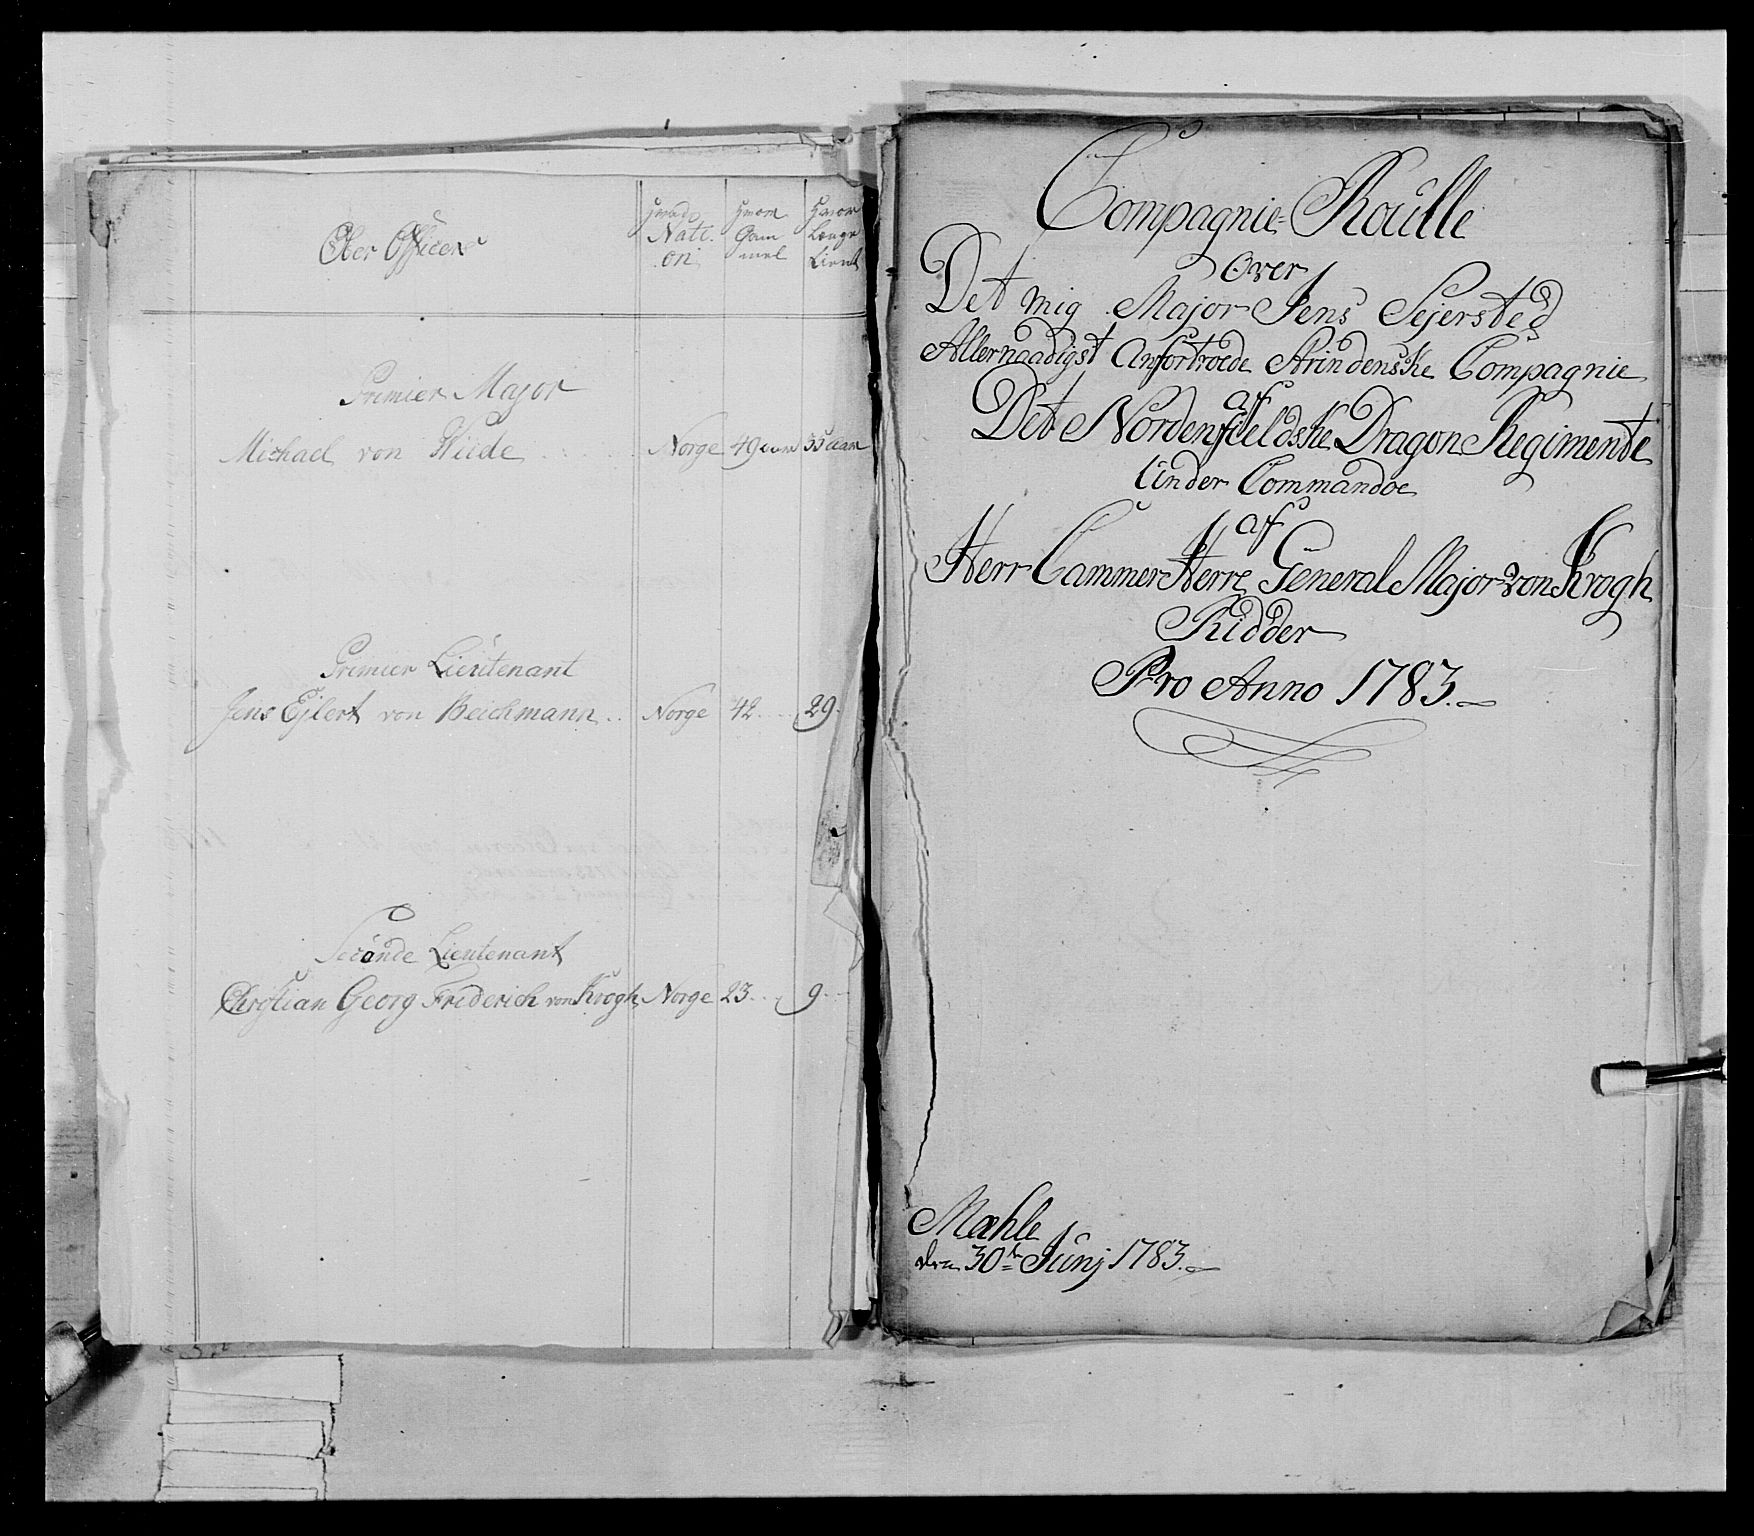 Ober Officere
Hvad Nati-
on
Hvor
Gam
mel
Hvor
Længe
Tient
Premier Major
Michael von Wilde Norge 49 aar 35 aar
Premier Lieutenant
Jens Ejlert von Beichmann .. Norge 42 29.
Seconde Lieutenant
Christian Georg Friderich von Krogh Norge 23 9
Compagnie-Roulle
Over
Det mig Major Jens Sejersted
Allernaadigst Anfortroede Strindenske Compagnie
af
Det Nordenfieldske Dragon Regimente
Under Commandoe
af
Herr Cammer Herre General Major von Krogh
Ridder
Pro Anno 1783.
Mæhle
den 30te Junj 1783.